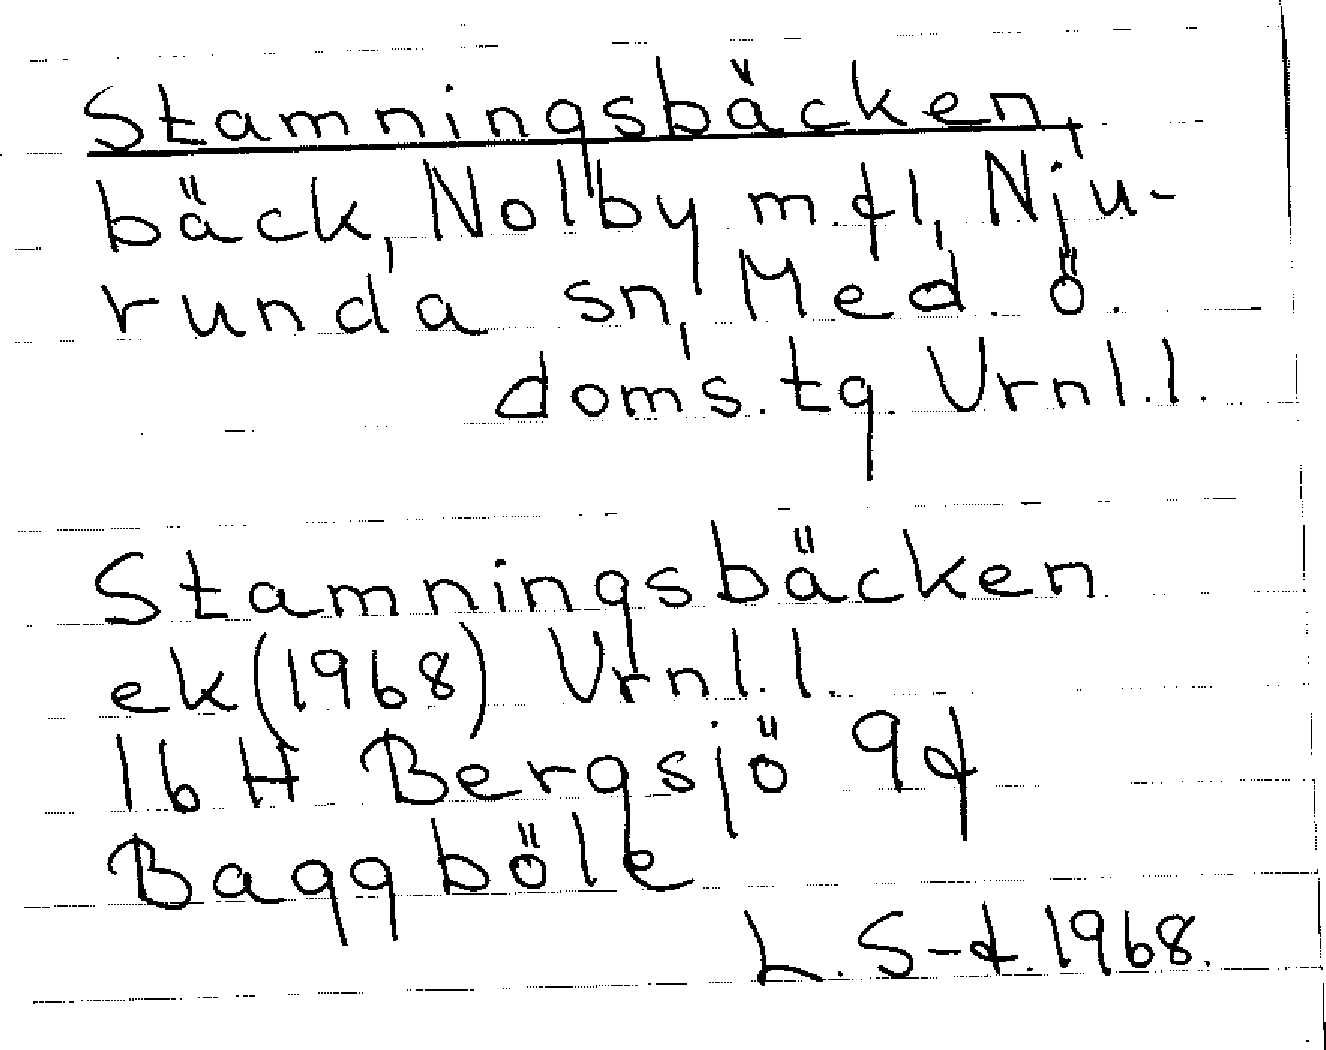 Stamningsbäcken,
bäck, Nolby m.fl, Nju-
runda sn, Med. ö.
doms.tg. Vrnl.l.
Stamningsbäcken
ek (1968) Vrnl.l.
16 H Bergsjö 9f
Baggböle
L. S-f. 1968.